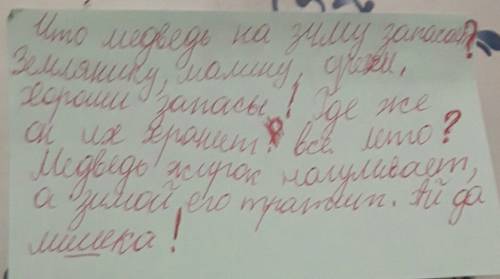 Что медведь на зиму запасал?
Землянику, малину, орехи,
хороши запасы! Где же
он их хранит? всё лето?
Медведь жирок нагуливает,
а зимой его тратит. Ай да
мишка!